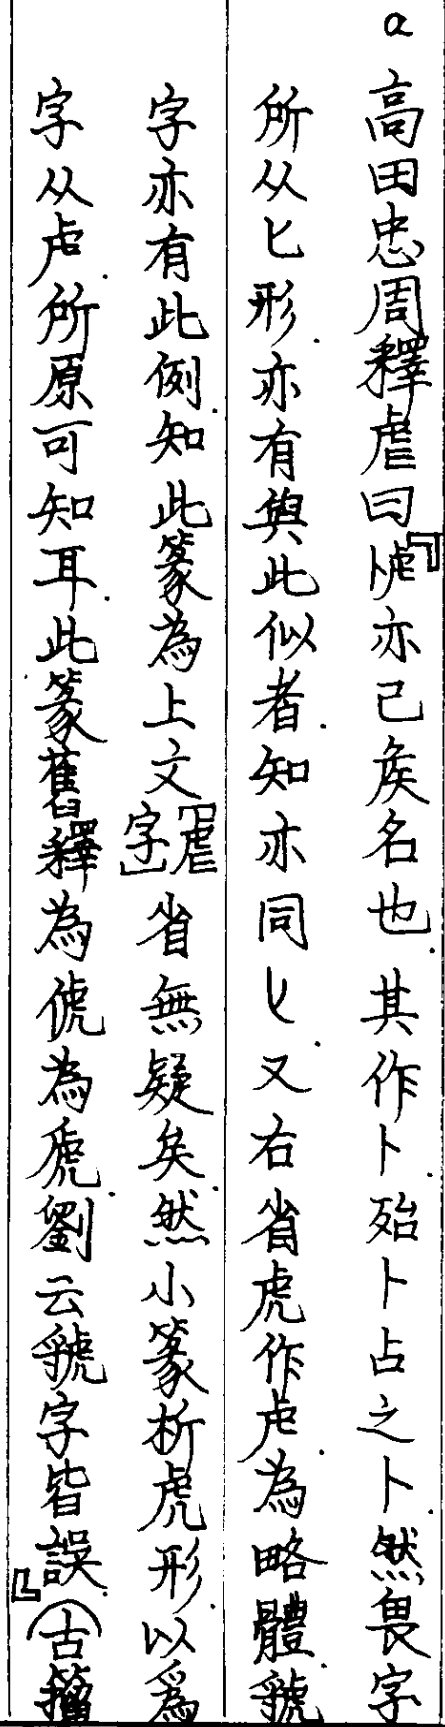 a 高田忠周釋虐曰『䖈亦己矦名也.其作卜.殆卜占之卜.然畏字
所从匕形.亦有與此似者.知亦同匕.又右省虎作虍.為略體.虢
字亦有此例.知此篆為上文「虐字」省無疑矣.然小篆析虎形.以爲
字从虍.所原可知耳.此篆舊釋為俿為虒.劉云虢字皆誤.』(古籀